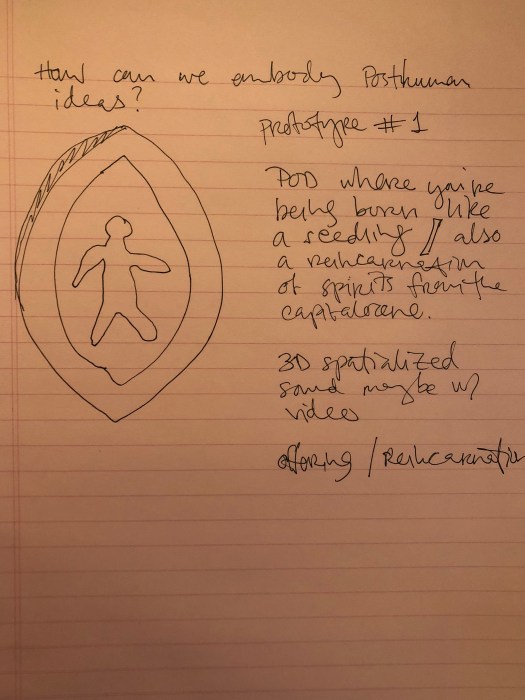 How can we embody Posthuman
ideas?
prototype #1
POD where you're
being born like
a seedling / also
a reincarnation
of spirits from the
capitalocene.
3D spatialized
sound maybe w/
video
offering / Reincarnation